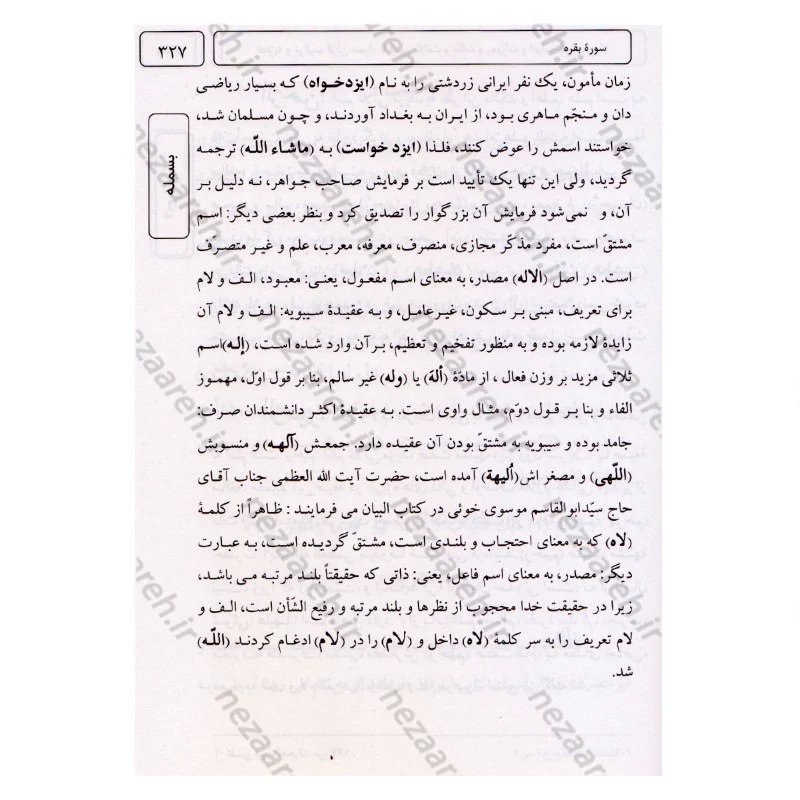 سورهٔ بقره
۳۲۷
بسمله
زمان مأمون، یک نفر ایرانی زردشتی را به نام (ایزدخواه) که بسیار ریاضی
دان و منجّم ماهری بود، از ایران به بغداد آوردند، و چون مسلمان شد،
خواستند اسمش را عوض کنند، فلذا (ایزد خواست) به (ماشاء اللّه) ترجمه
گردید، ولی این تنها یک تأیید است بر فرمایش صاحب جواهر، نه دلیل بر
آن، و نمی‌شود فرمایش آن بزرگوار را تصدیق کرد و بنظر بعضی دیگر: اسم
مشتقّ است، مفرد مذکّر مجازی، منصرف، معرفه، معرب، علم و غیر متصرّف
است. در اصل (الاله) مصدر، به معنای اسم مفعول، یعنی: معبود، الف و لام
برای تعریف، مبنی بر سکون، غیرعامل، و به عقیدهٔ سیبویه: الف و لام آن
زایدهٔ لازمه بوده و به منظور تفخیم و تعظیم، برآن وارد شده است، (إله)اسم
ثلاثی مزید بر وزن فعال ، از مادّهٔ (ألهَ) یا (وله) غیر سالم، بنا بر قول اوّل، مهموز
الفاء و بنا بر قول دوّم، مثال واوی است. به عقیدهٔ اکثر دانشمندان صرف:
جامد بوده و سیبویه به مشتقّ بودن آن عقیده دارد. جمعش (آلهه) و منسوبش
(اللّهی) و مصغر اش(اُلیهة) آمده است، حضرت آیت الله العظمی جناب آقای
حاج سیّدابوالقاسم موسوی خوئی در کتاب البیان می فرمایند : ظاهراً از کلمهٔ
(لاه) که به معنای احتجاب و بلندی است، مشتقّ گردیده است، به عبارت
دیگر: مصدر، به معنای اسم فاعل، یعنی: ذاتی که حقیقتاً بلند مرتبه می باشد،
زیرا در حقیقت خدا محجوب از نظرها و بلند مرتبه و رفیع الشّأن است، الف و
لام تعریف را به سر کلمهٔ (لاه) داخل و (لام) را در (لام) ادغام کردند (اللّه)
شد.
nezaareh.ir